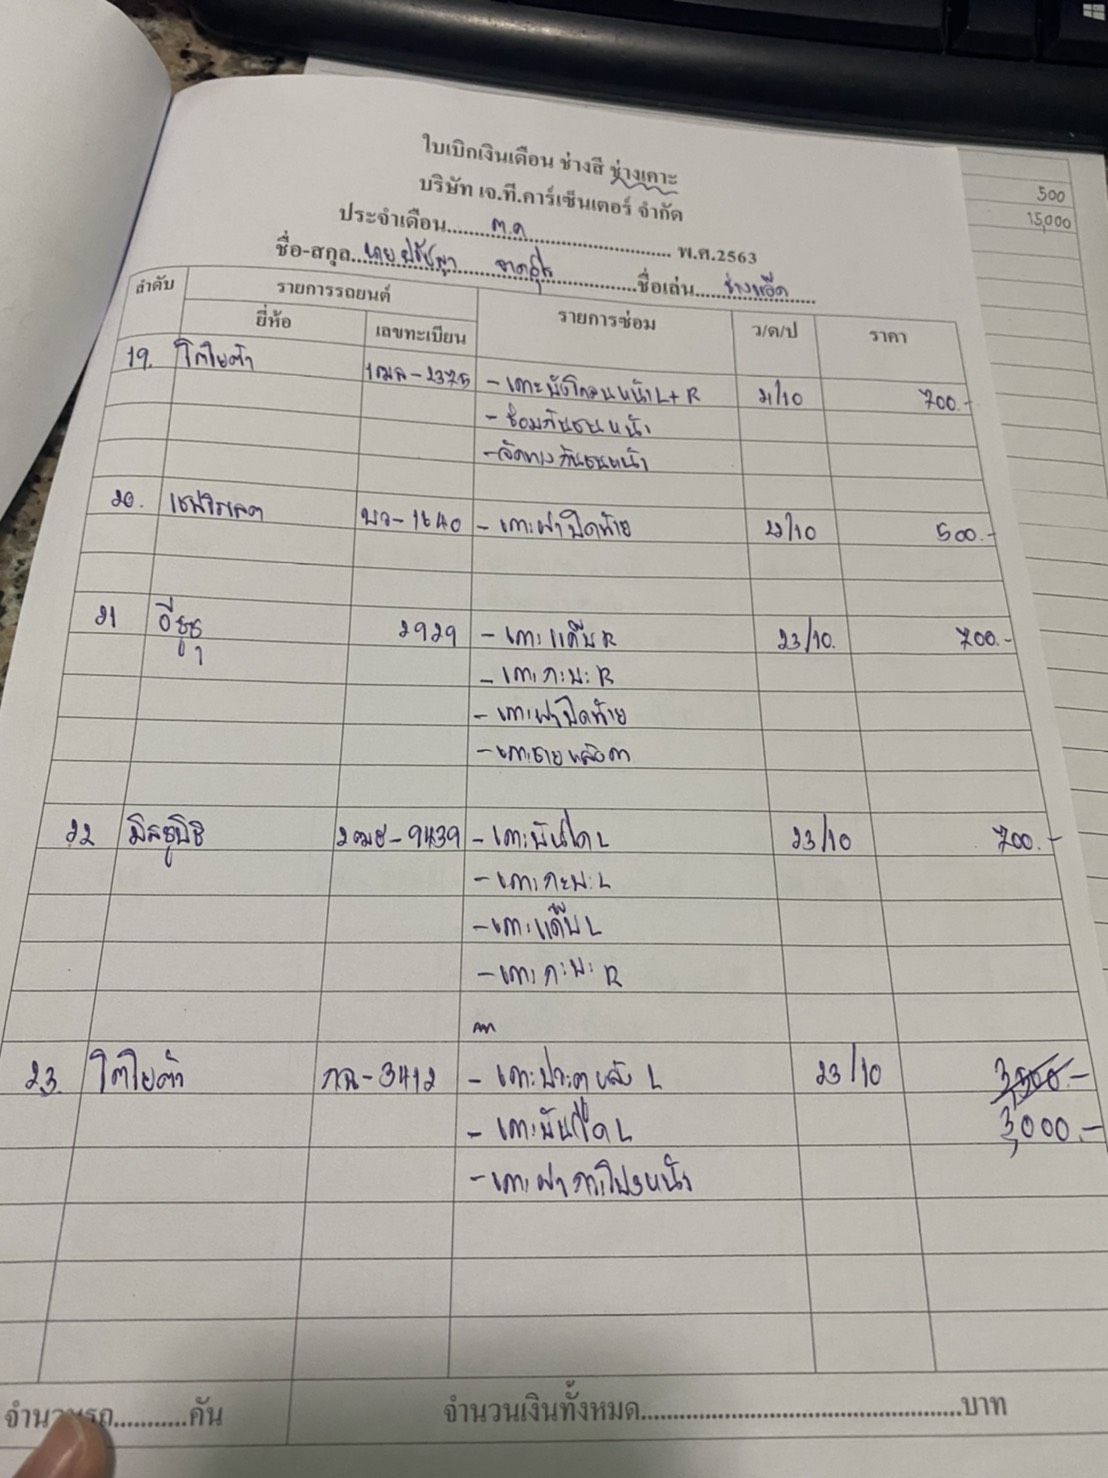 ใบเบิกเงินเดือน ช่างสี ช่างเคาะ
บริษัท เจ.ที.คาร์เซ็นเตอร์ จำกัด
ประจำเดือน ต.ค พ.ศ.2563
ชื่อ-สกุล นาย ชื่อเล่น ช่างแอ๊ด
500
15,000
ลำดับ รายการรถยนต์ รายการซ่อม ว/ด/ป ราคา
ยี่ห้อ เลขทะเบียน
19. โตโยต้า - เคาะบังโคลนหน้า L+R 21/10 700.-
- ซ่อมกันชนหน้า
- กันชนหน้า
20. เชฟโรเลต บว-1640 - เคาะฝาปิดท้าย 500.-
21 อีซูซุ 2929 - เคาะแค็บ R 23/10. 700.-
- เคาะกะบะ R
- เคาะฝาปิดท้าย
- เคาะชายหลังคา
22 มิตซูบิชิ - เคาะบันได L 23/10 700.-
- เคาะกะบะ L
- เคาะแค็บ L
- เคาะกะบะ R
23. โตโยต้า กฉ-3412 - เคาะประตูหลัง L 23/10 3,500.-
- เคาะบันได L 3,000.-
- เคาะฝากระโปรงหน้า
จำนวนรถ...........คัน จำนวนเงินทั้งหมด..................................................บาท